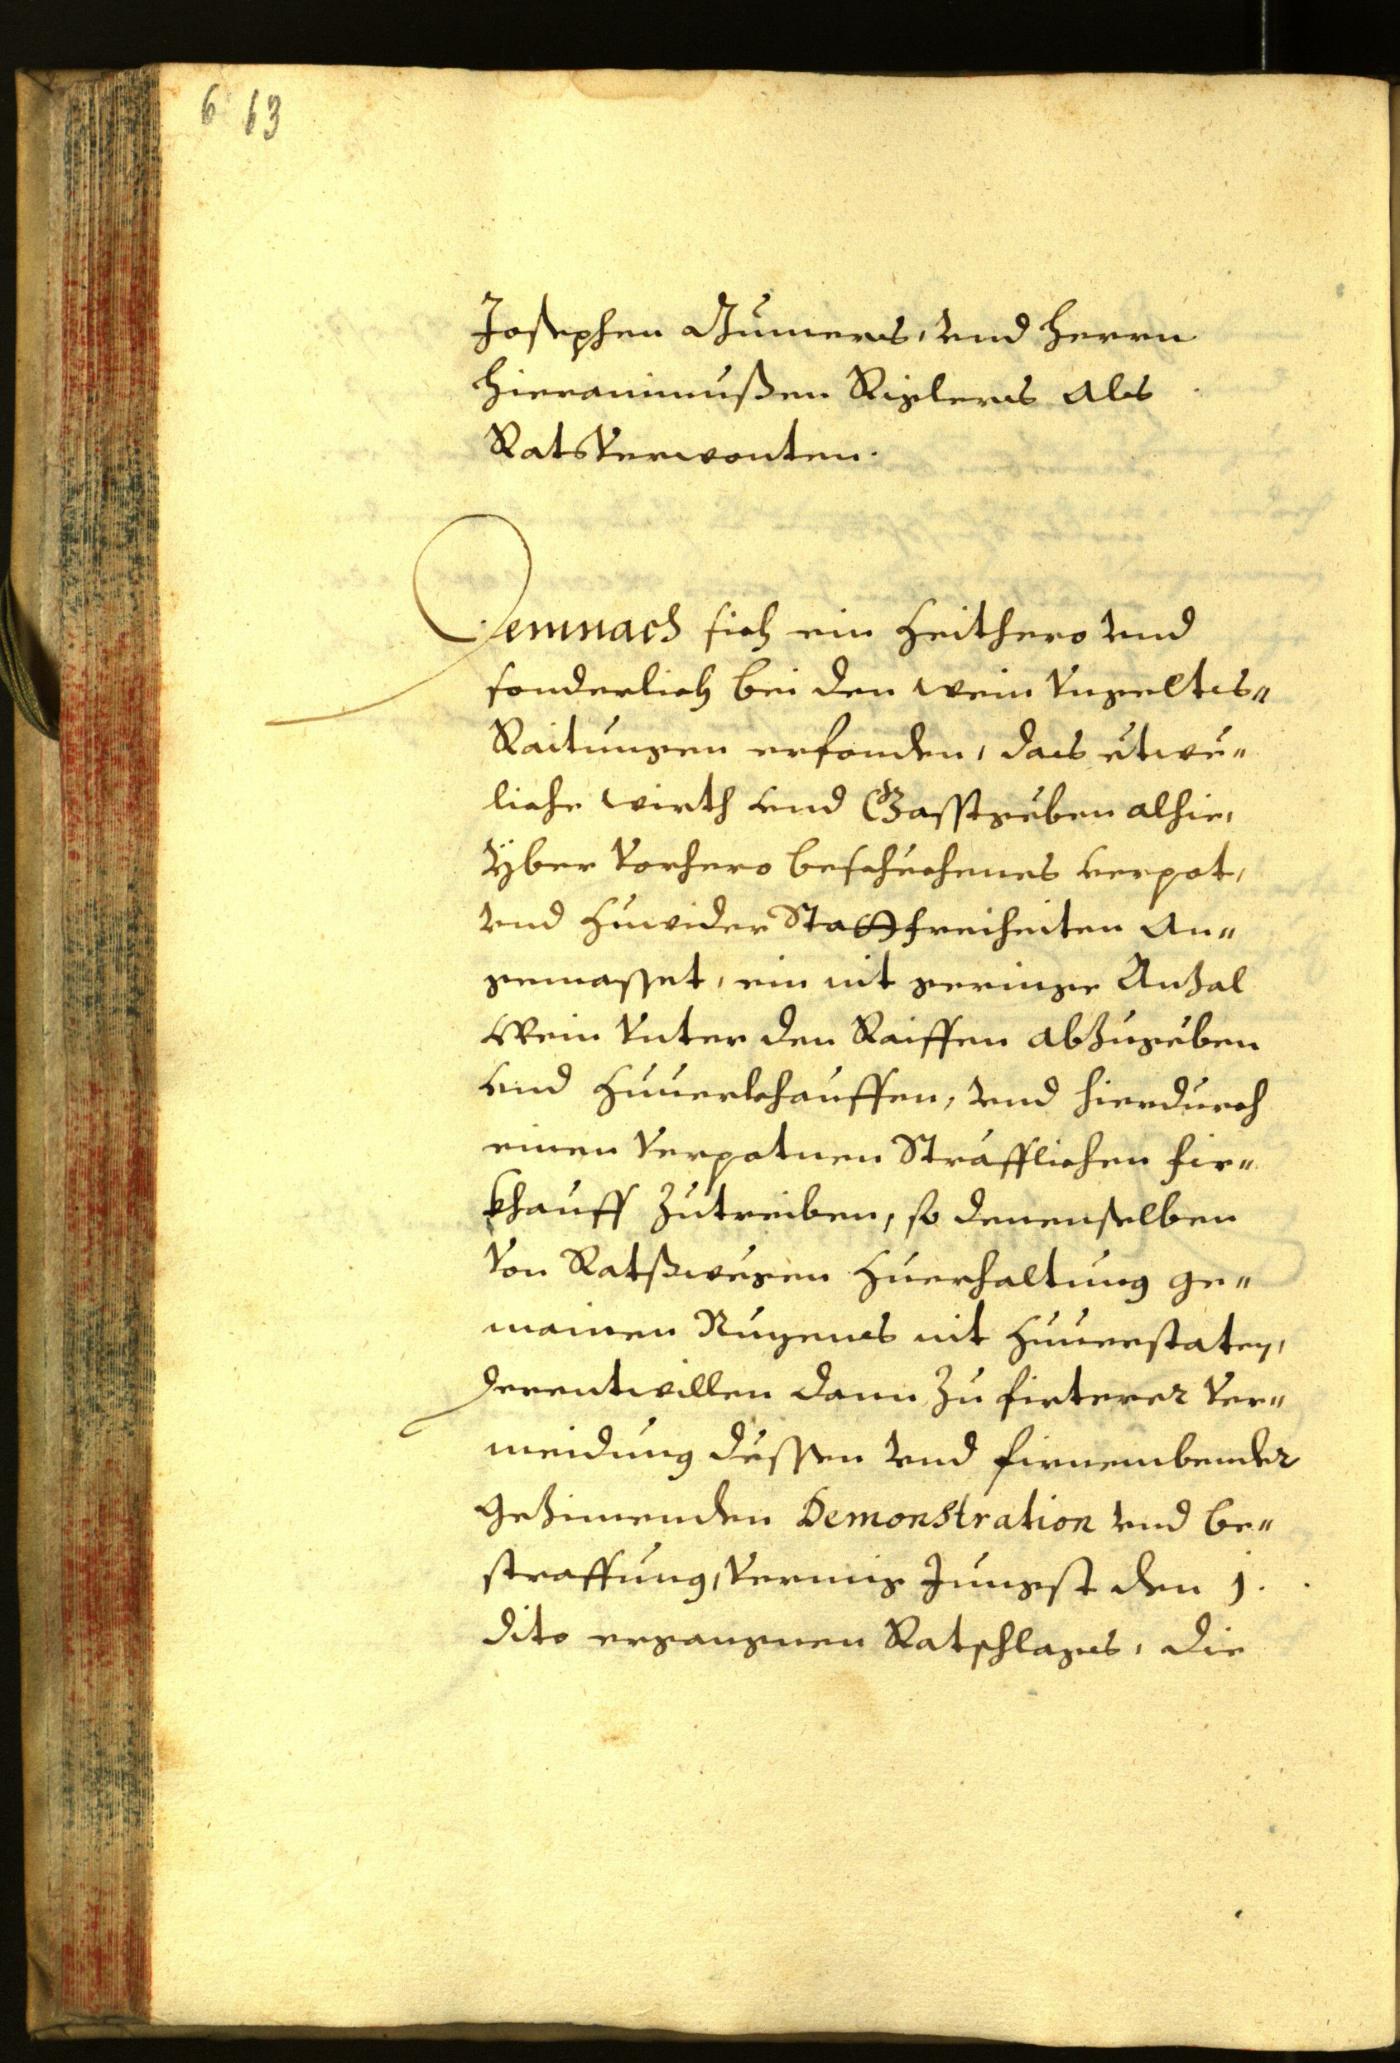 6 63
Josephen Gumers, vnd Herrn
Hieronimußen Riglers als
Ratsverwonten.
Demnach sich ein Zeithero vnd
sonderlich bei den wein vngeltes"
Raitungen erfonden, das etwe"
liche wirth vnd Gasstgeben alhie,
yber vorhero beschechenes verpot,
vnd zuwider Statfreiheiten an"
gemasset, ein nit geringe Anzal
Wein vnter den Raiffen abzugeben
vnd zuuerkhauffen, vnd hierdurch
einen verpotnen Sträfflichen fir"
khauff zutreiben, so denenselben
von Ratßwegen zuerhaltung ge"
mainen Nuzens nit zuuerstaten,
derentwillen dann zu firterer ver"
meidung dessen vnd firnembender
gezimenden Demonstration vnd be"
straffung, vermig Jungst den 1.
dito ergangnen Ratschlages, die